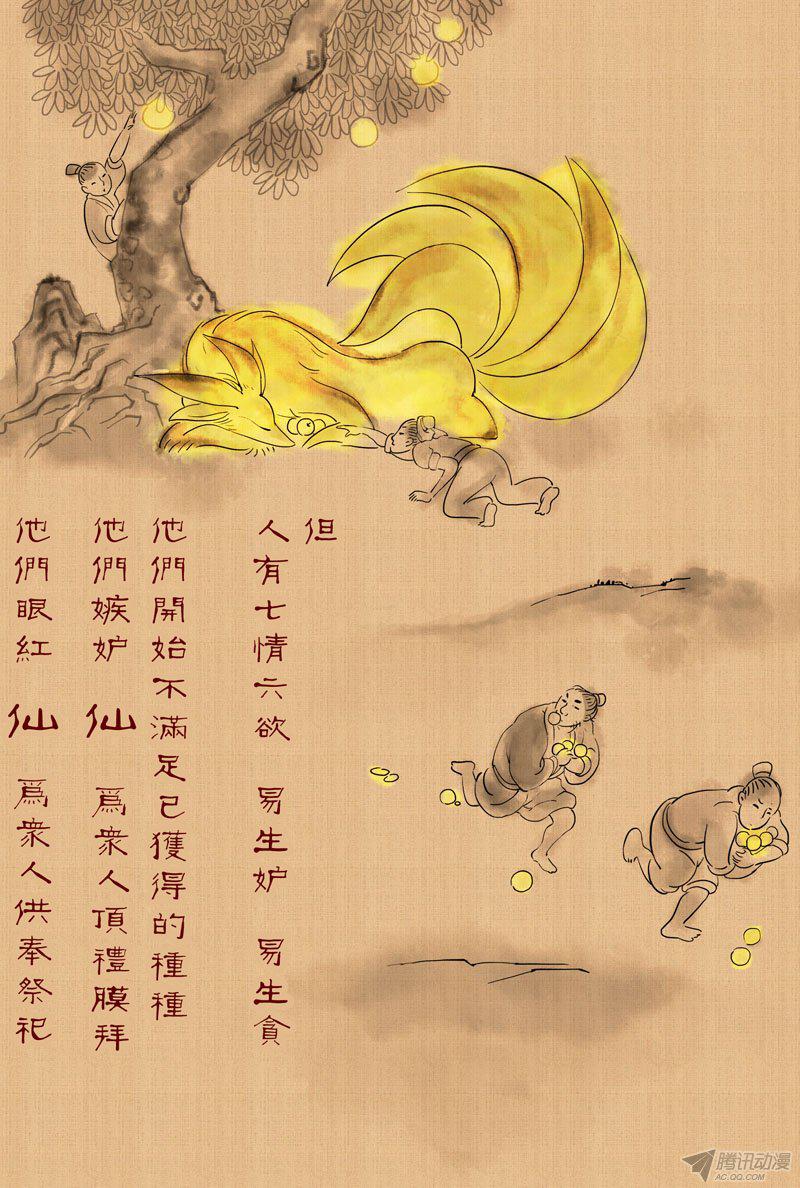 但
人有七情六欲 易生妒 易生貪
他們開始不滿足已獲得的種種
他們嫉妒 仙 爲衆人頂禮膜拜
他們眼紅 仙 爲衆人供奉祭祀
腾讯动漫
AC.QQ.COM